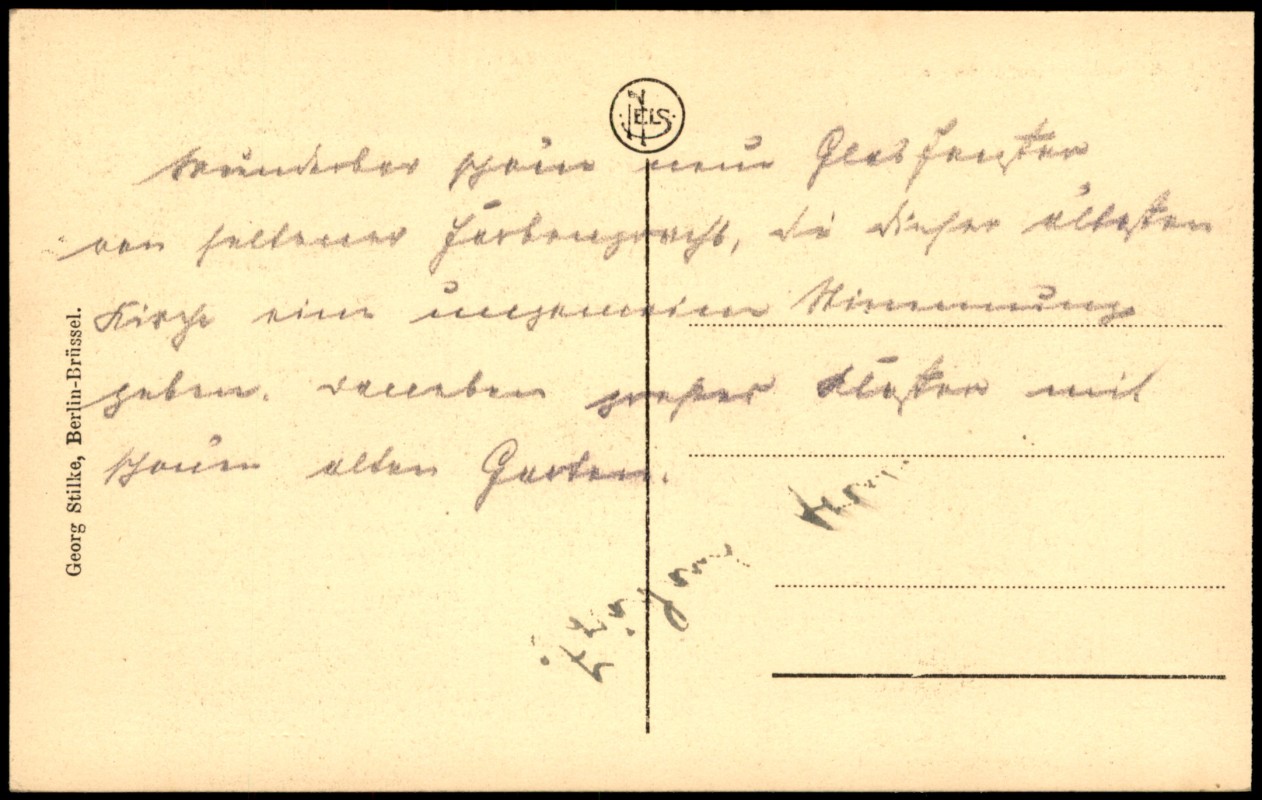 NELS
Wunderbar schöne neue Glasfenster
von seltener Farbenpracht, die dieser ältesten
Kirche eine ungemeine Stimmung
geben. Daneben großes Kloster mit
schönen alten Garten.
Georg Stilke, Berlin-Brüssel.